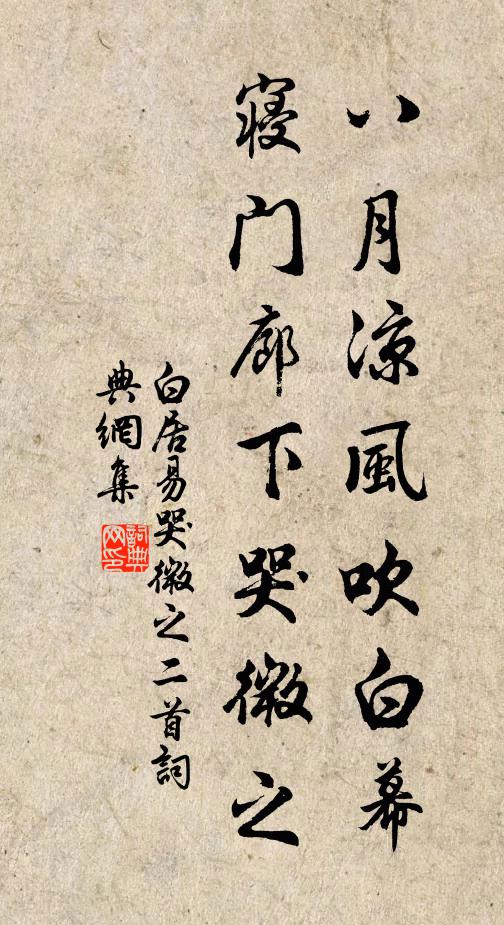 八月涼風吹白幕
寢門廊下哭微之
白居易哭微之二首詞
典網集
詞典网印